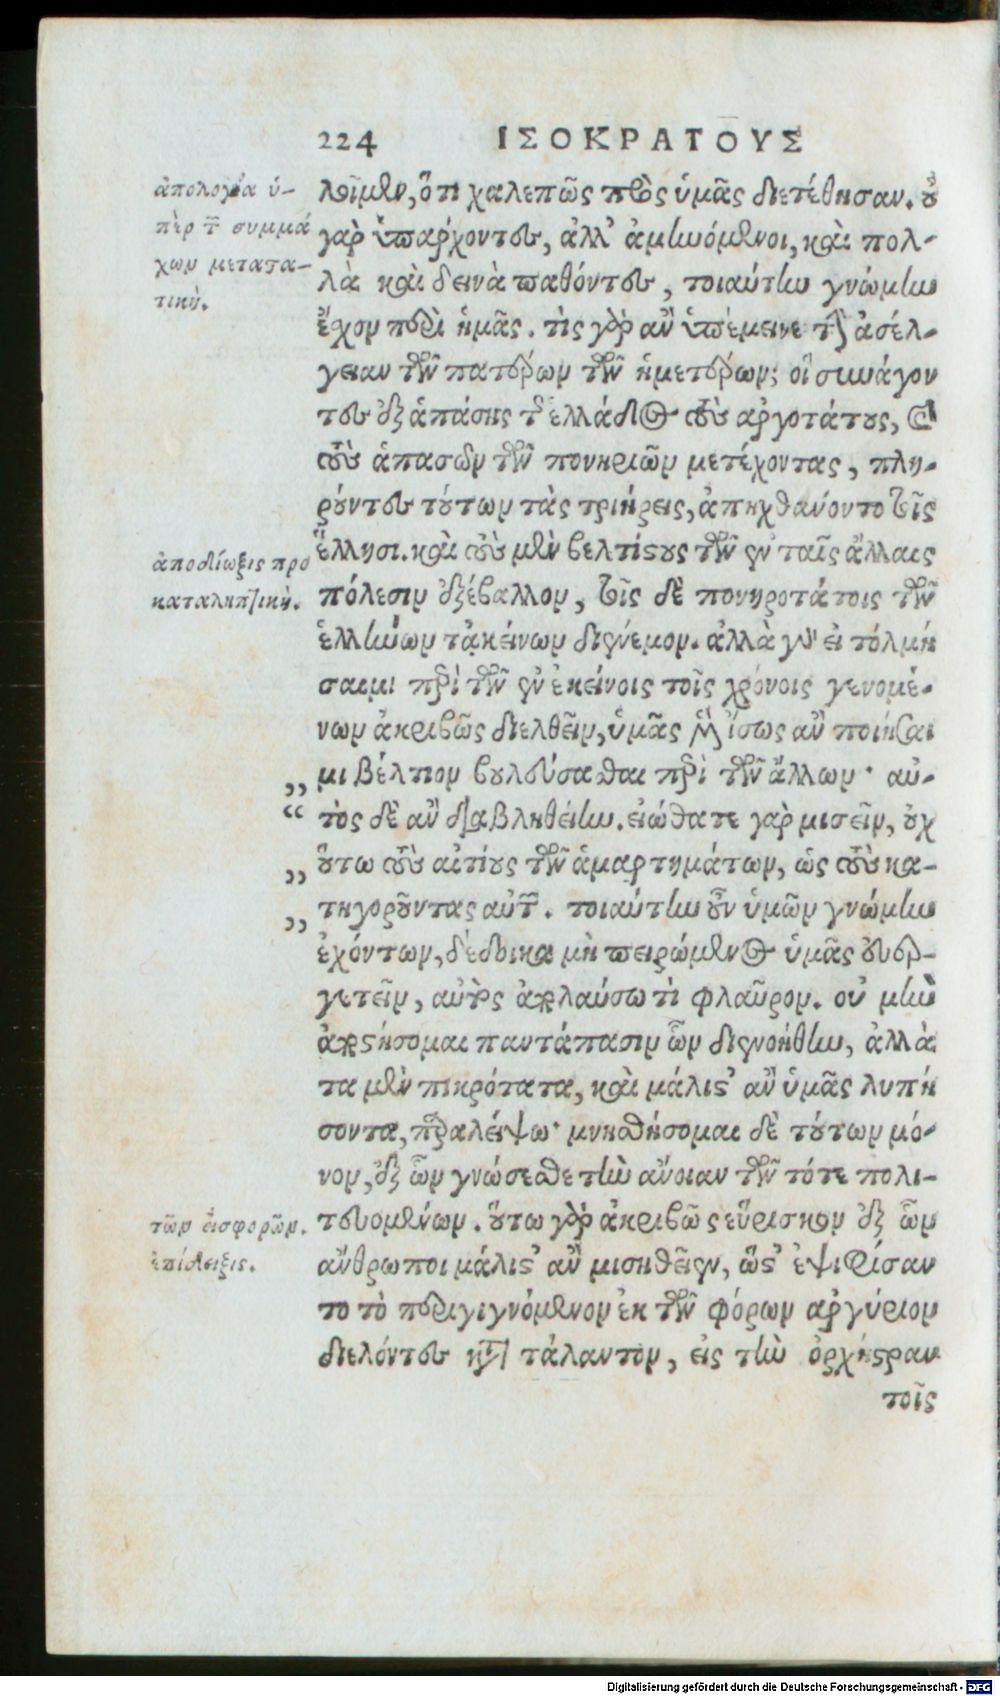 224 ΙΣΟΚΡΑΤΟΥΣ
ἀπολογία ὑ-
πὲρ τ συμμά
χων μεταστα-
τική.
λοῖμεν, ὅτι χαλεπῶς πρὸς ὑμᾶς διετέθησαν. οὐ
γὰρ ὑπάρχοντες, ἀλλ' ἀμυνόμενοι, καὶ πολ-
λὰ καὶ δεινὰ παθόντες, τοιαύτην γνώμην
ἔχον περὶ ἡμᾶς. τίς γὰρ ἂν ὑπέμεινε τὴν ἀσέλ-
γειαν τῶν πατέρων τῶν ἡμετέρων; οἳ συνάγον
τες ἐξ ἁπάσης τῆς ἑλλάδος τοὺς ἀργοτάτους, καὶ
τοὺς ἁπασῶν τῶν πονηριῶν μετέχοντας, πλη-
ροῦντες τούτων τὰς τριήρεις, ἀπηχθάνοντο τοῖς
ἕλλησι. καὶ τοὺς μὲν βελτίστους τῶν ἐν ταῖς ἄλλαις
ἀποδίωξις προ
καταληπτική.
πόλεσιν ἐξέβαλλον, τοῖς δὲ πονηροτάτοις τῶν
ἑλλήνων τἀκείνων διένεμον. ἀλλὰ γὰρ εἰ τολμή
σαιμι περὶ τῶν ἐν ἐκείνοις τοῖς χρόνοις γενομέ-
νων ἀκριβῶς διελθεῖν, ὑμᾶς μὲν ἴσως ἂν ποιήσαι
,, μι βέλτιον βουλεύσασθαι περὶ τῶν ἄλλων· αὐ-
“ τὸς δὲ ἂν διαβληθείην. εἰώθατε γὰρ μισεῖν, οὐχ
,, οὕτω τοὺς αἰτίους τῶν ἁμαρτημάτων, ὡς τοὺς κα-
,, τηγοροῦντας αὐτῶν. τοιαύτην οὖν ὑμῶν γνώμην
ἐχόντων, δέδοικα μὴ πειρώμενος ὑμᾶς εὐεργ-
γετεῖν, αὐτὸς ἀπολαύσω τὶ φλαῦρον. οὐ μὴν
ἀποστήσομαι παντάπασιν ὧν διενοήθην, ἀλλὰ
τα μὲν πικρότατα, καὶ μάλιστ' ἂν ὑμᾶς λυπή
σοντα, παραλείψω· μνησθήσομαι δὲ τούτων μό-
νον, ἐξ ὧν γνώσεσθε τὴν ἄνοιαν τῶν τότε πολι-
τῶν εἰσφορῶν.
ἐπίδειξις.
τευομένων. οὕτω γὰρ ἀκριβῶς εὕρισκον ἐξ ὧν
ἄνθρωποι μάλιστ' ἂν μισηθεῖεν, ὥστ' ἐψηφίσαν
το τὸ περιγιγνόμενον ἐκ τῶν φόρων ἀργύριον
διελόντες κατὰ τάλαντον, εἰς τὴν ὀρχήστραν
τοῖς
Digitalisierung gefördert durch die Deutsche Forschungsgemeinschaft - DFG